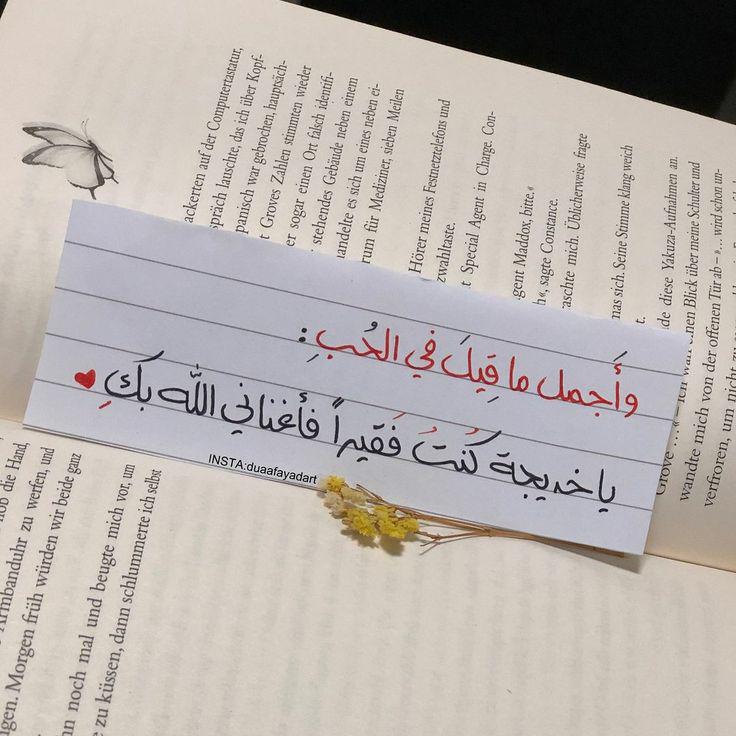 وأَجمل ما قِيلَ في الحُبِ :
يا خديجة كُنتُ فَقيراً فأغناني الله بكِ
INSTA:duaafayadart
ackerten auf der Computertastatur,
spräch lauschte, das ich über Kopf-
panisch war gebrochen, hauptsäch-
t Groves Zahlen stimmten wieder
er sogar einen Ort falsch identifi-
stehendes Gebäude neben einem
andelte es sich um eines neben ei-
rum für Mediziner, sieben Meilen
Hörer meines Festnetztelefons und
zwahltaste.
t Special Agent in Charge. Con-
gent Maddox, bitte.«
h«, sagte Constance.
raschte mich. Üblicherweise fragte
mas sich. Seine Stimme klang weich
t.
de diese Yakuza-Aufnahmen an.
einen Blick über meine Schulter und
wandte mich von der offenen Tür ab – »... wird schon un-
verfroren, um nicht zu
die Hand,
Armbanduhr zu werfen, und
gen. Morgen früh würden wir beide ganz
nn noch mal und beugte mich vor, um
e zu küssen, dann schlummerte ich selbst